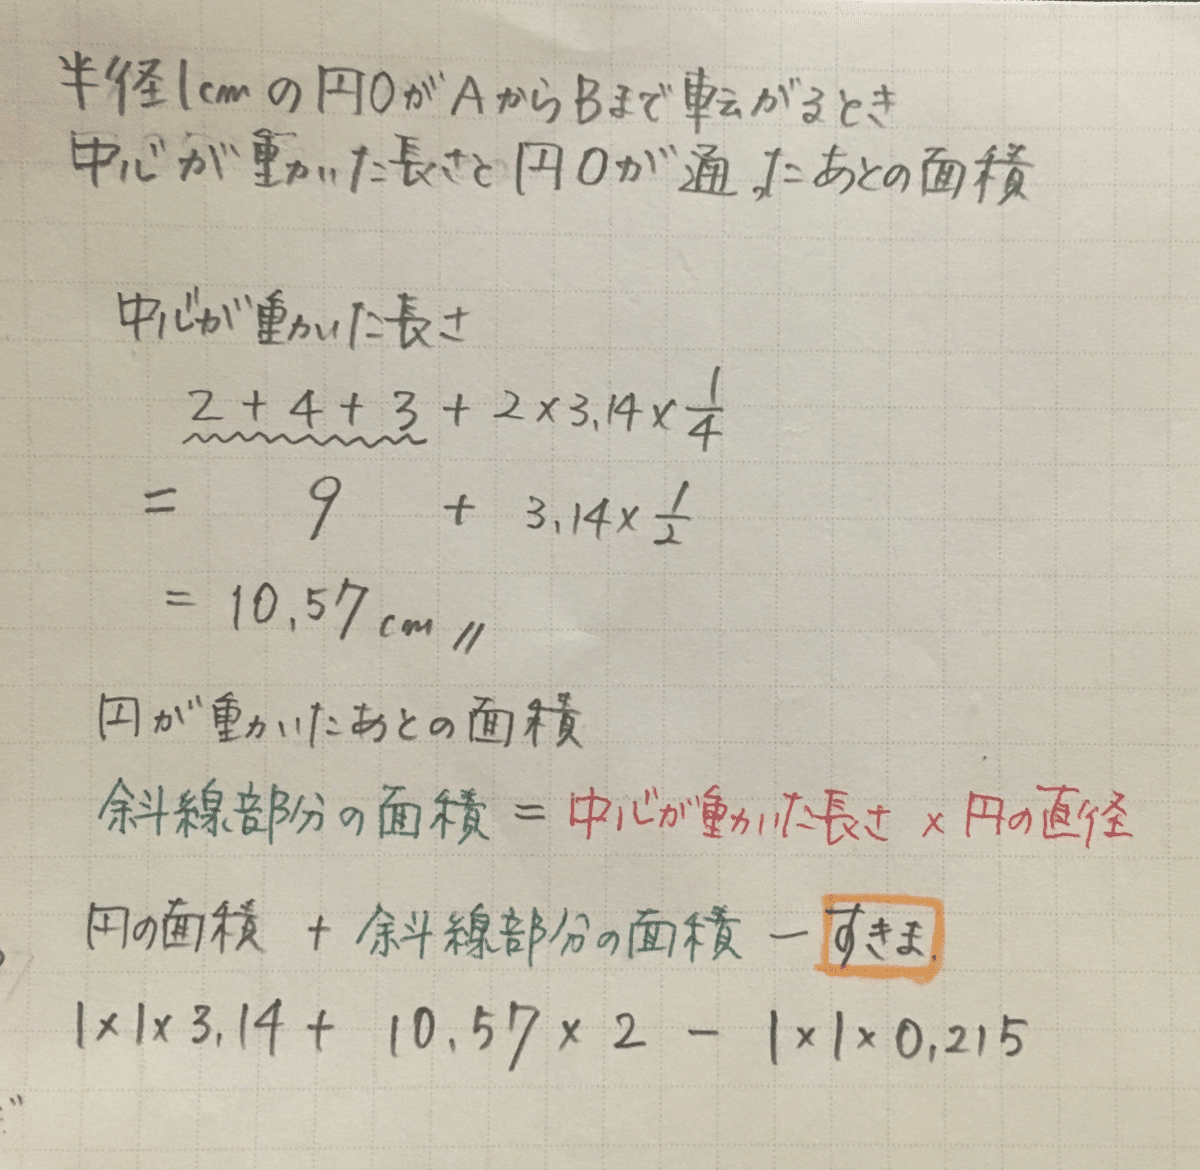 半径1cmの円OがAからBまで転がるとき
中心が動いた長さと円Oが通ったあとの面積
中心が動いた長さ
2 + 4 + 3 + 2 × 3.14 × 1/4
= 9 + 3.14 × 1/2
= 10.57 cm〃
円が動いたあとの面積
斜線部分の面積 = 中心が動いた長さ × 円の直径
円の面積 + 斜線部分の面積 − すきま
1×1×3.14 + 10.57 × 2 − 1×1×0.215